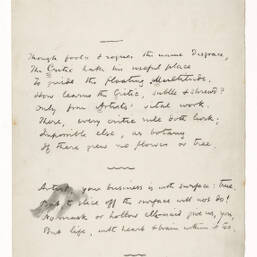 Though fools & rogues the name Disgrace,
The Critic hath his useful place
To guide the floating Multitude.
How learns the Critic, subtle & shrewd?
Only from Artists' vital work.
There, every critic rule doth lurk;
Impossible else, as botany
If there grew no flowers or tree.
Artist, your business is with surface: true,
But to slice off the surface will not do!
No mask or hollow give us, you,
But life, with heart & brain within & too.